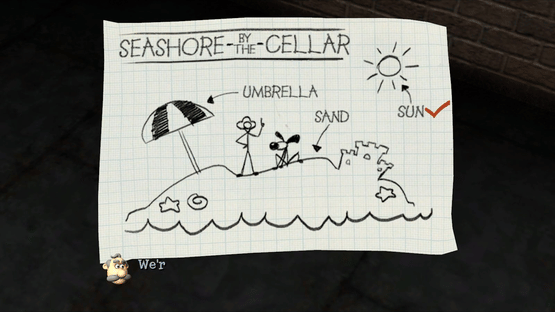 SEASHORE-BY THE-CELLAR
UMBRELLA
SAND
SUN
We'r